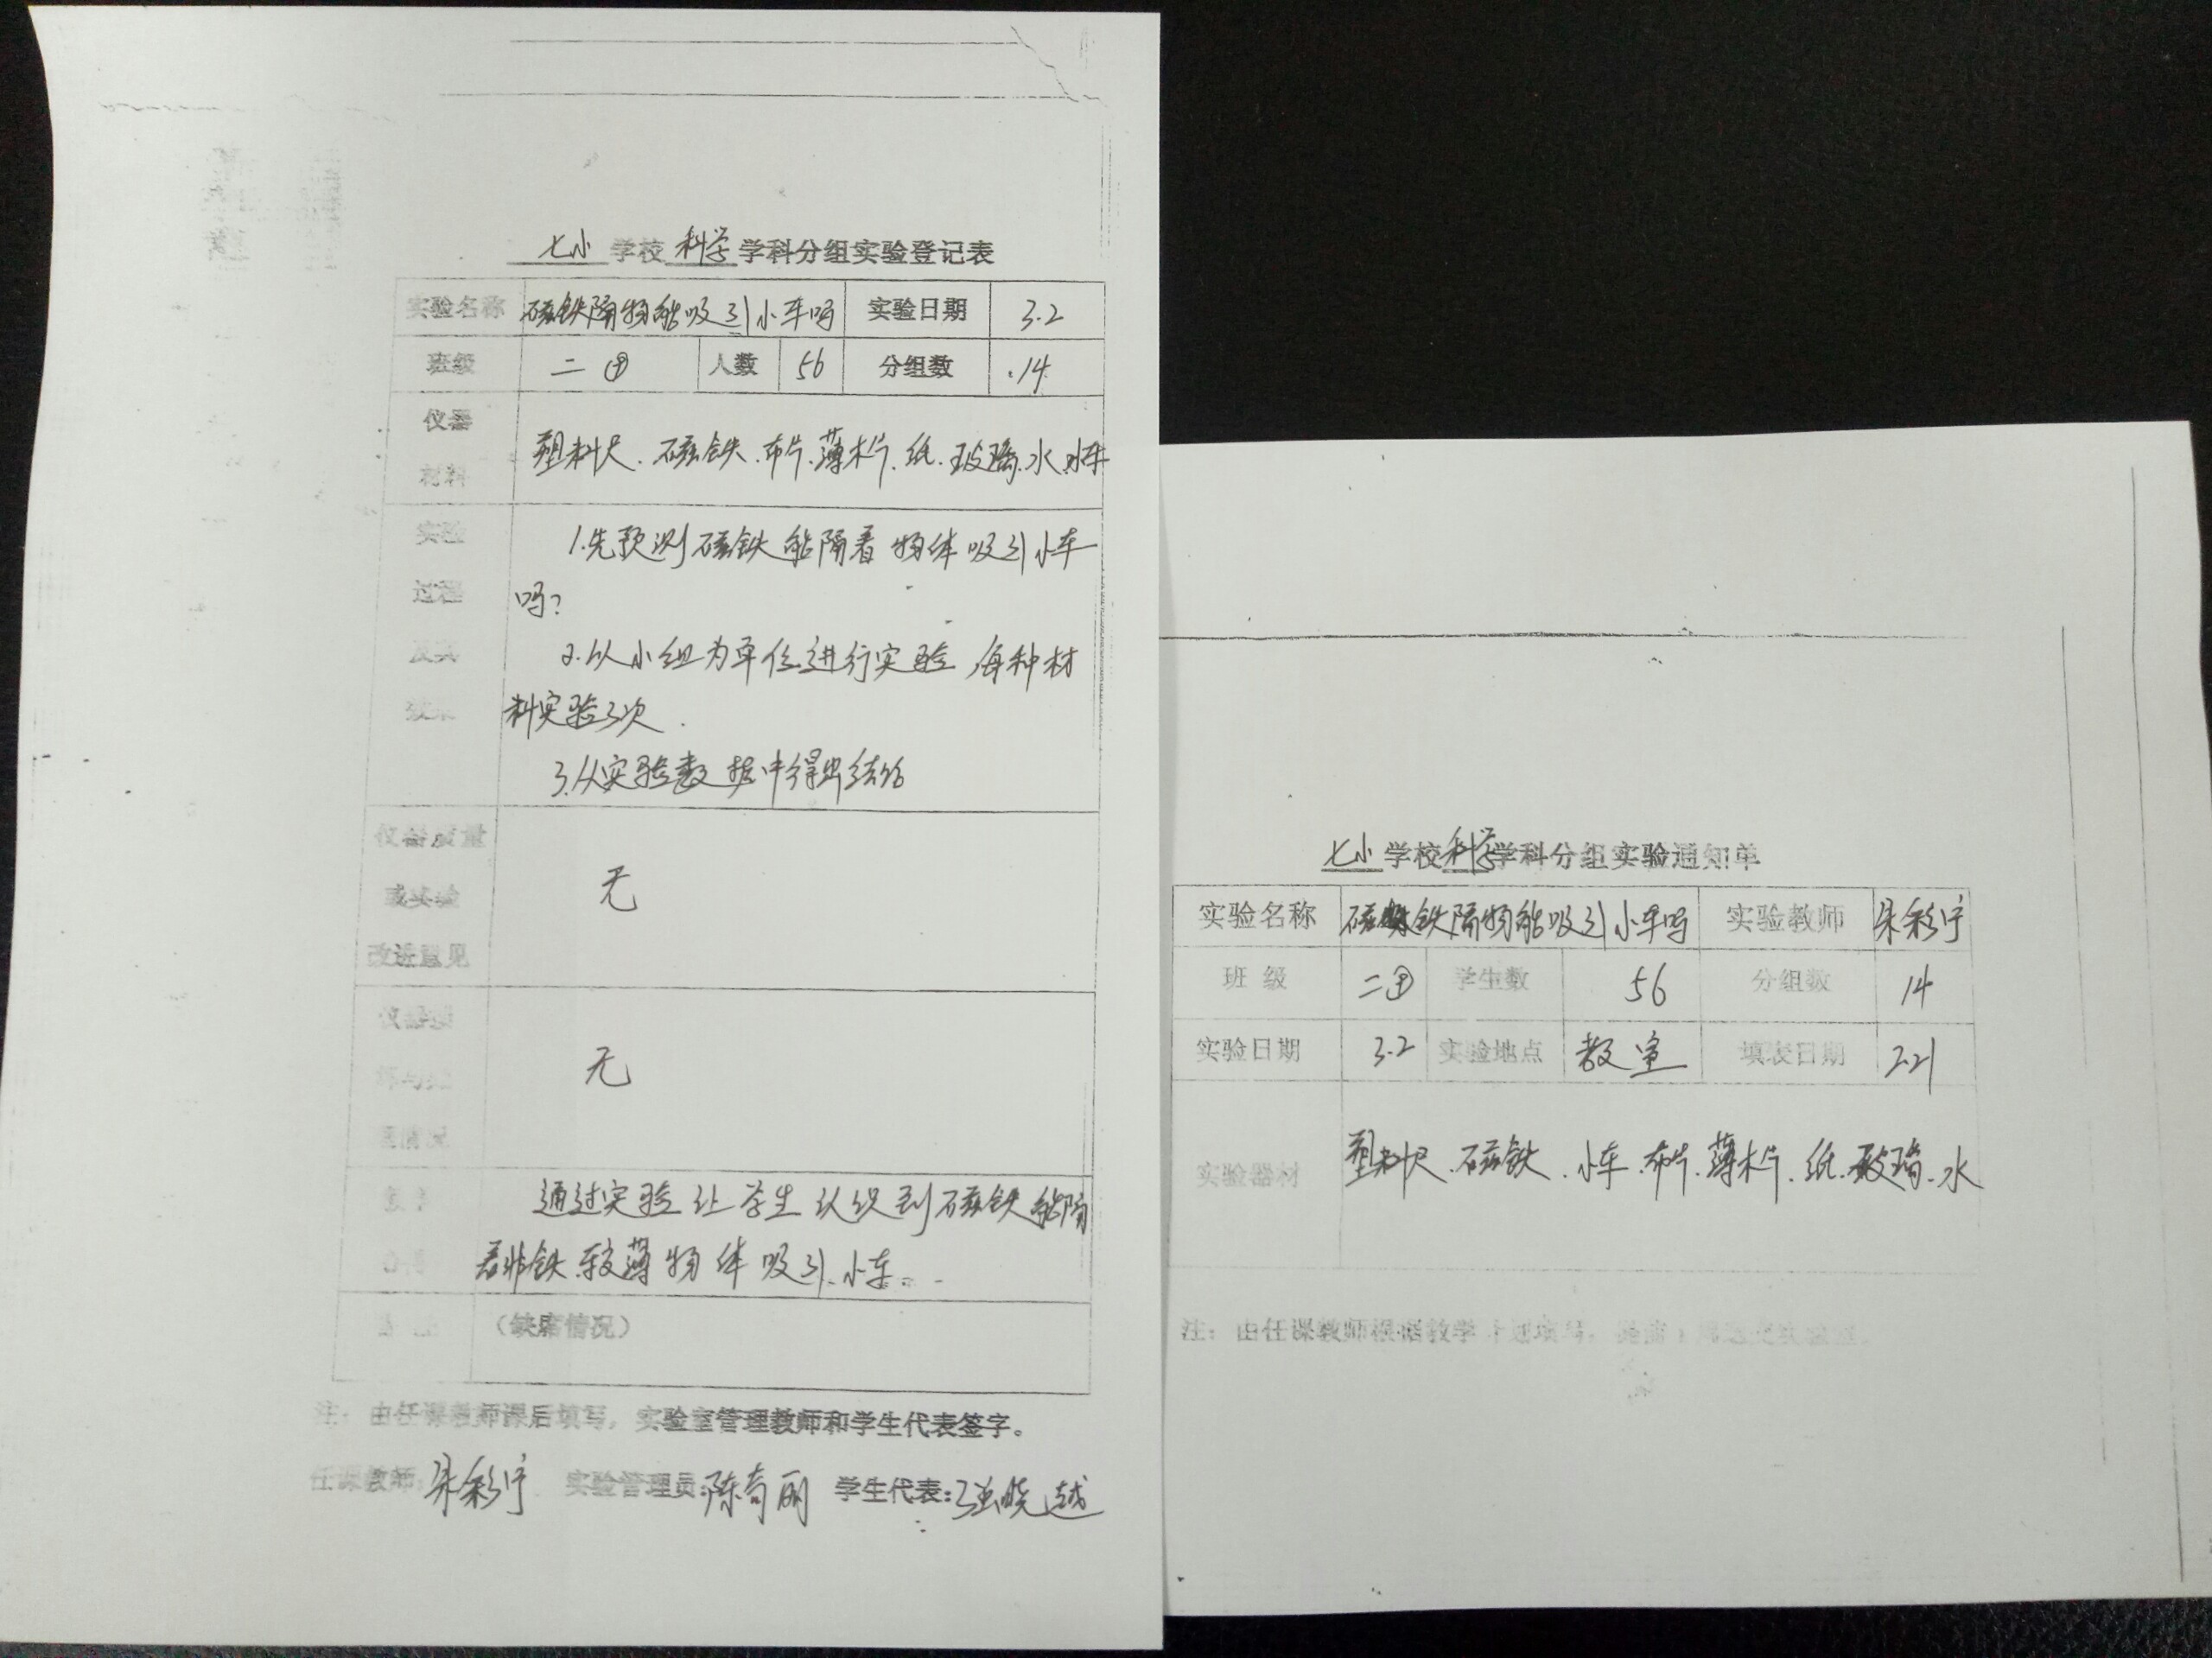 七小 学校 科学 学科分组实验登记表
实验名称 磁铁隔物能吸引小车吗 实验日期 3.2
班级 二 人数 56 分组数 14
仪器
材料
塑料尺.磁铁.布片.薄木片.纸.玻璃.水.小车
实验
过程
1.先预测磁铁能隔着物体吸引小车
吗?
2.以小组为单位进行实验,每种材
料实验3次.
3.从实验数据中得出结论
仪器质量
或实验
改进意见
无
无
通过实验让学生认识到磁铁能隔
着非铁较薄物体吸引小车。
(缺席情况)
注:由任课教师课后填写,实验室管理教师和学生代表签字。
任课教师: 实验管理员:陈奇丽 学生代表:张晓越
七小 学校 科学 学科分组实验通知单
实验名称 磁铁隔物能吸引小车吗 实验教师
班 级 二 学生数 56 分组数 14
实验日期 3.2 实验地点 教室 填表日期 2.21
实验器材 塑料尺.磁铁.小车.布片.薄木片.纸.玻璃.水
注:由任课教师根据教学